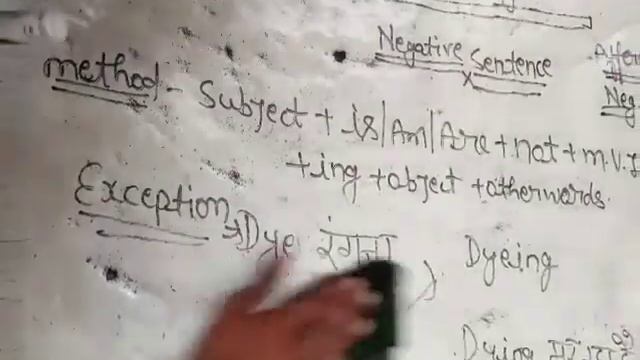 Negative Sentence
Neg
method - Subject + is/Am/Are + not + m.v.I
+ing +object + otherwards.
Exception → Dye रंगना Dyeing
Dying